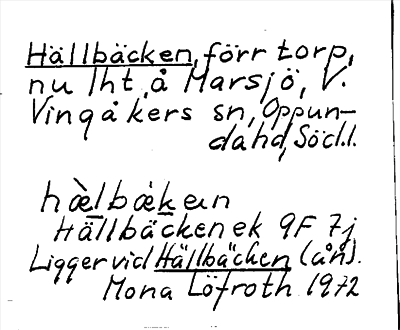 Hällbäcken, förr torp,
nu lht, å Marsjö, V.
Vingåkers sn, Oppun-
dahd, Södl.
hǜlbäkɐn
Hällbäcken ek 9F 7j
Ligger vid Hällbäcken (ån).
Mona Löfroth 1972